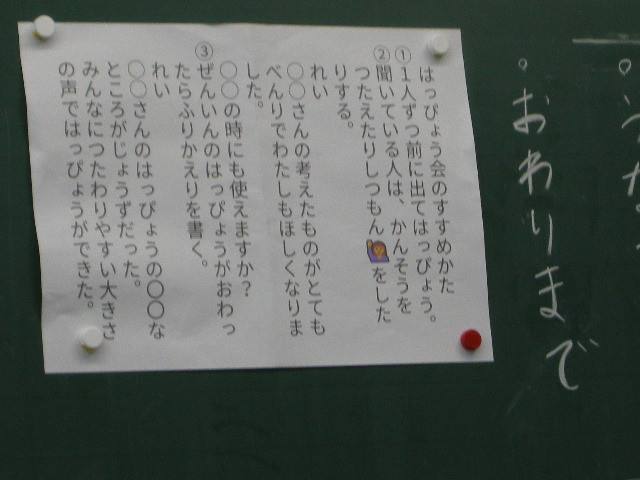 ・おわりまで
はっぴょう会のすすめかた
①1人ずつ前に出てはっぴょう。
②聞いている人は、かんそうを
つたえたりしつもん🙋をした
りする。
れい
〇〇さんの考えたものがとても
べんりでわたしもほしくなりま
した。
〇〇の時にも使えますか？
③ぜんいんのはっぴょうがおわっ
たらふりかえりを書く。
れい
〇〇さんのはっぴょうの〇〇な
ところがじょうずだった。
みんなにつたわりやすい大きさ
の声ではっぴょうができた。